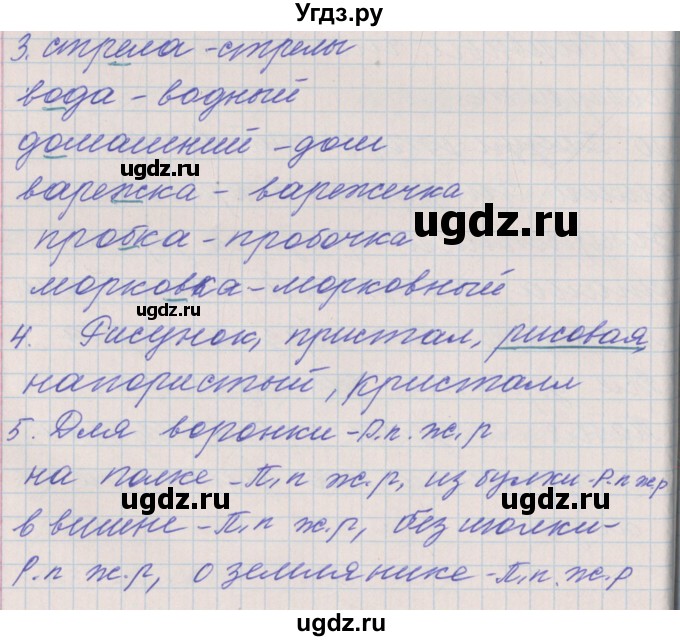 Угдз.ру
3. стрела - стрелы
вода - водный
домашний - дом
ugdz.ru
варежка - варежечка
ugdz.ru
пробка - пробочка
морковка - морковный
ugdz.ru
4. Рисунок, пристал, рисовая,
напористый, кристалл
5. Для воронки - Р.п. ж.р
на полке - П.п ж.р, из булки - Р.п ж.р
ugdz.ru
ugdz.ru
в вишне - П.п ж.р, без иголки -
Р.п ж.р, о землянике - П.п. ж.р
ugdz.ru